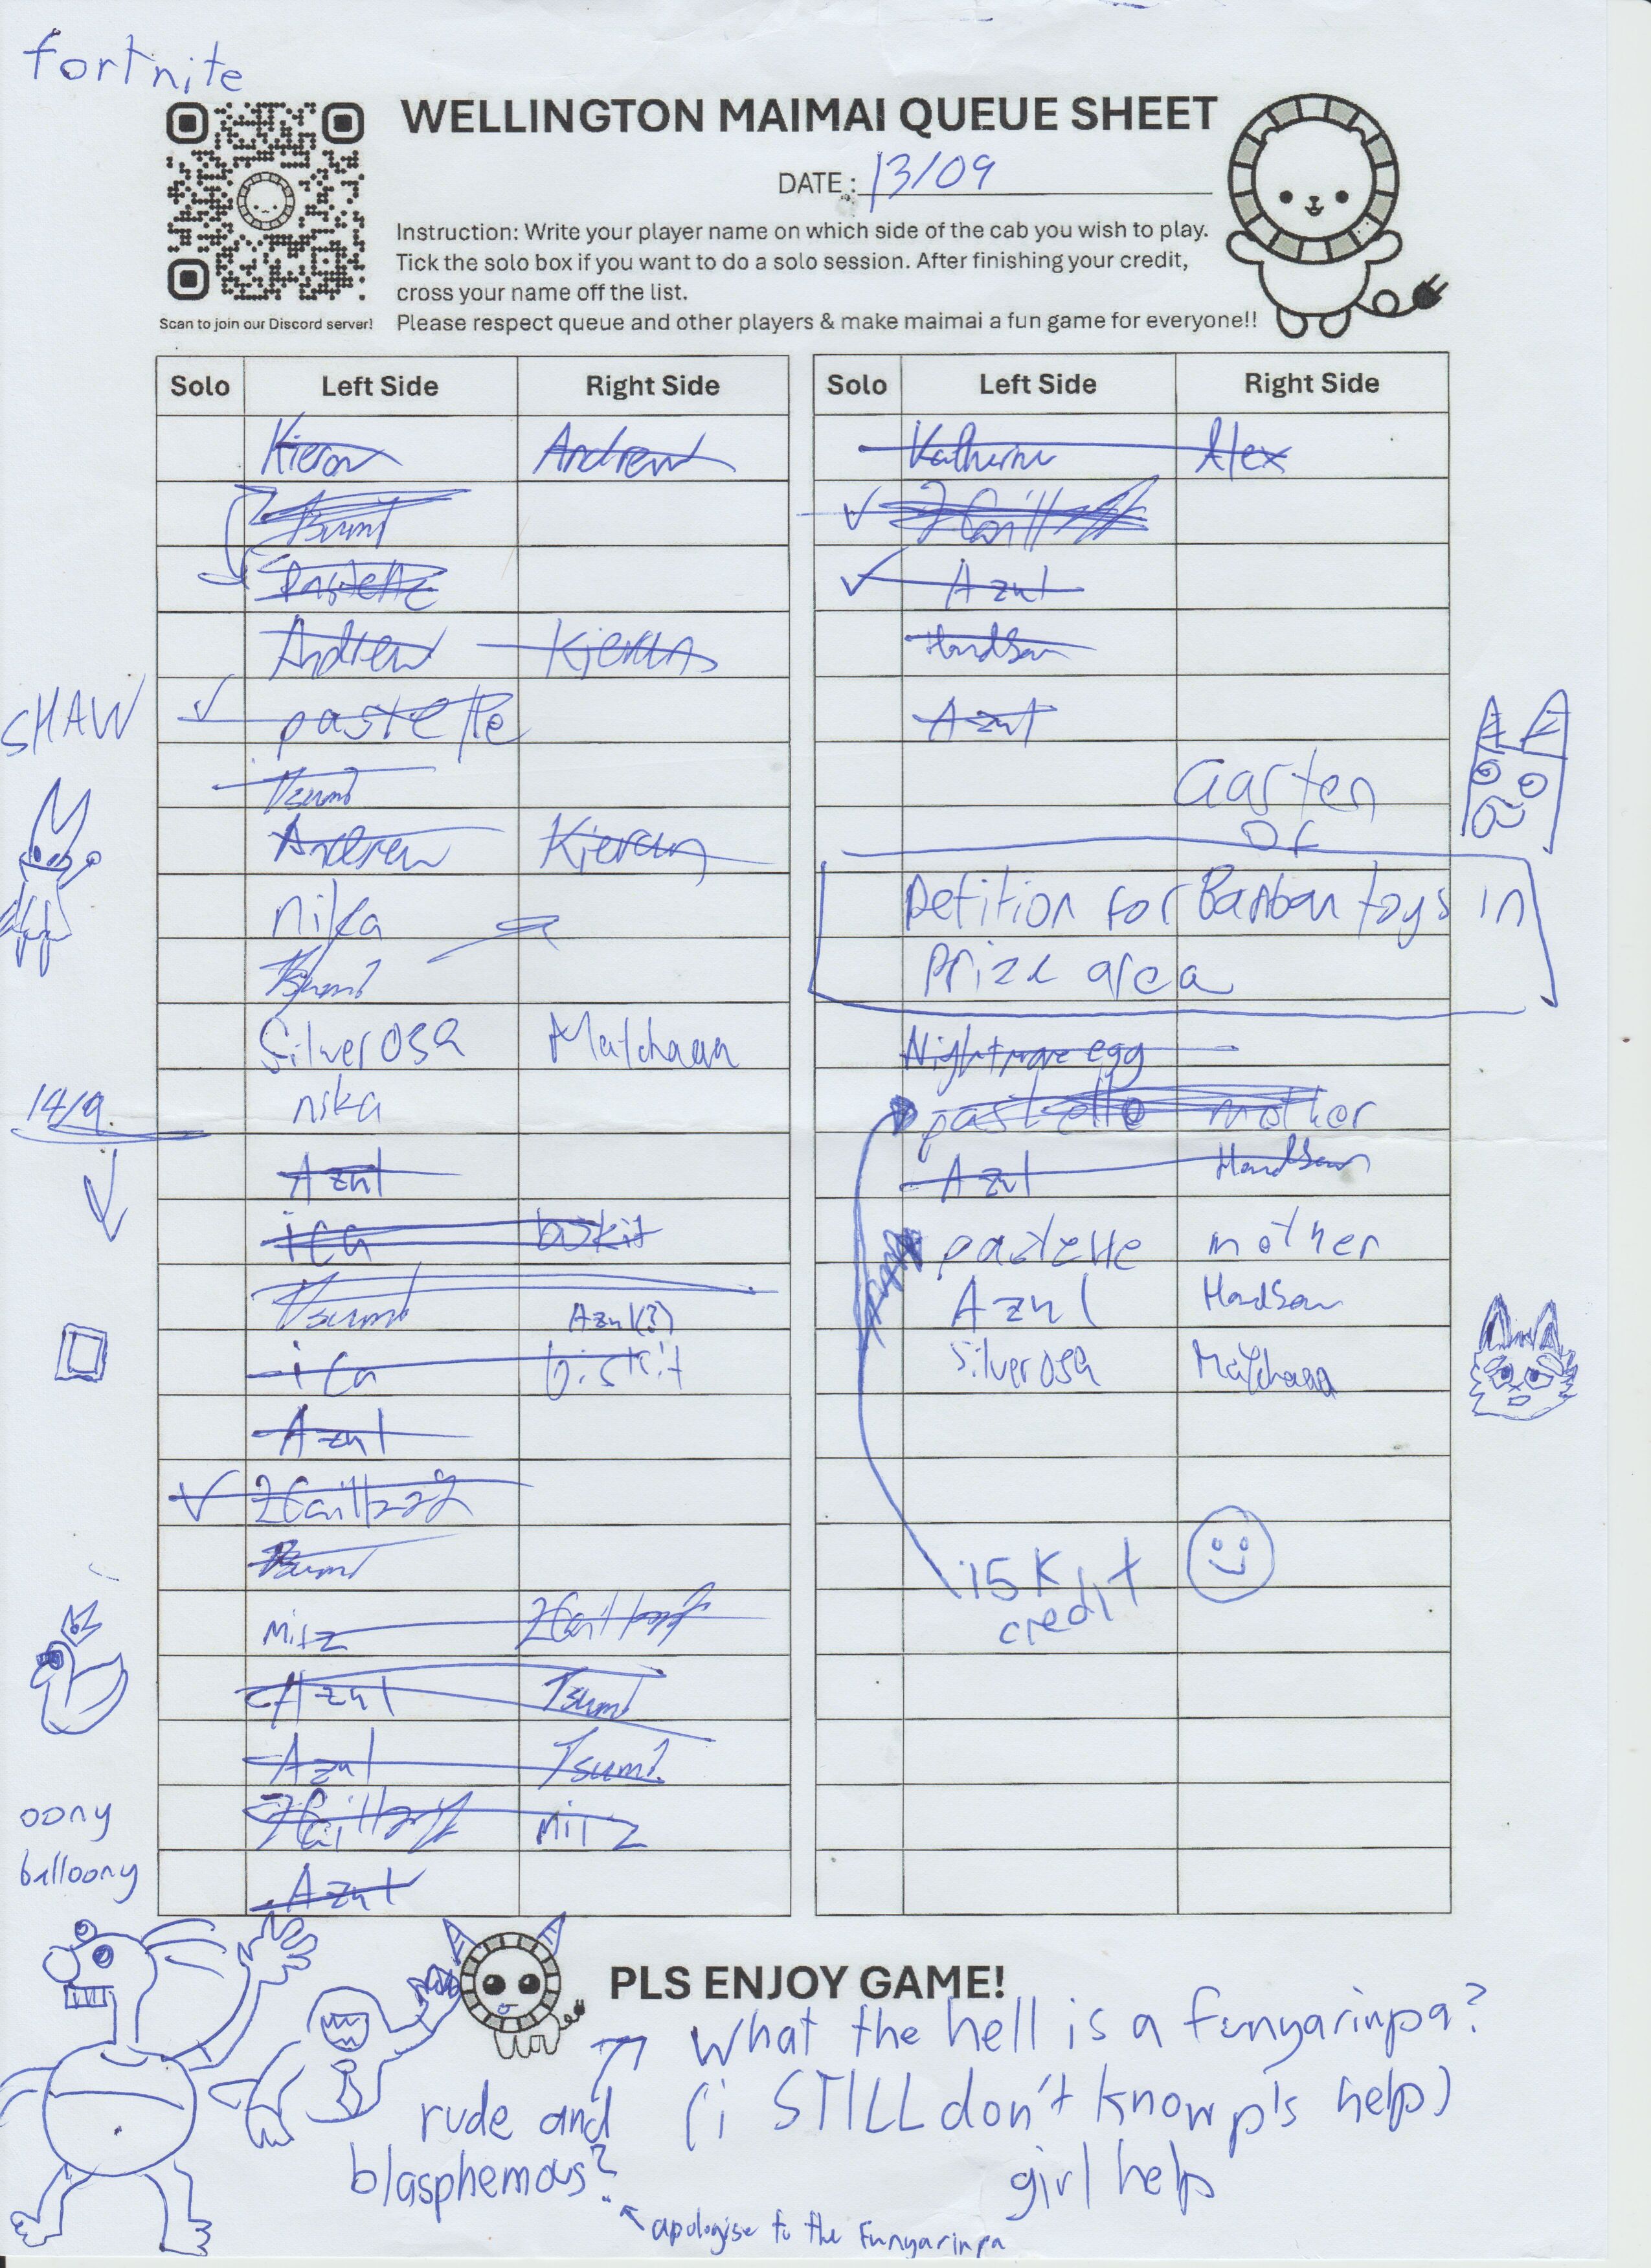 fortnite
WELLINGTON MAIMAI QUEUE SHEET
DATE: 13/09
Instruction: Write your player name on which side of the cab you wish to play.
Tick the solo box if you want to do a solo session. After finishing your credit,
cross your name off the list.
Please respect queue and other players & make maimai a fun game for everyone!!
Scan to join our Discord server!
Solo Left Side Right Side
Kieran Andrew
Tsumi
Pastelle
Andrew Kieran
SHAW
✓ pastelle
Tsumi
Andrew Kieran
nika
Tsumi
Silverosa Matchaaa
14/9
nika
Azul
ica biskit
Tsumi Azul(?)
ica biskit
Azul
✓
Tsumi
mitz
Azul Tsumi
Azul Tsumi
mitz
Azul
oony
balloony
Solo Left Side Right Side
Katherine Alex
✓
✓ Azul
HandSan
Azul
Garten
Of
Petition for Banban toys in
prize area
Nightmare egg
pastelle mother
Azul HandSan
pastelle mother
Azul HandSan
Silverosa Matchaaa
15K
credit
PLS ENJOY GAME!
What the hell is a funyarinpa?
(i STILL don't know pls help)
girl help
rude and
blasphemous?
apologise to the Funyarinpa